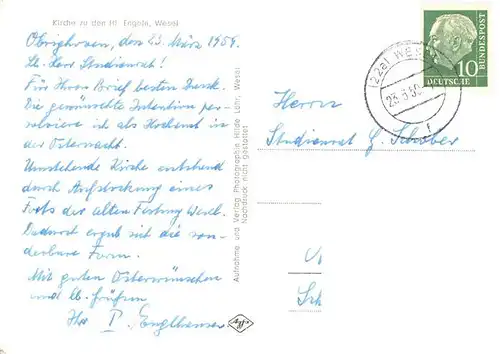 Kirche zu den Hl. Engeln, Wesel
Obrighoven, den 23. März 1959.
Lb. Herr Studienrat!
Für Ihren Brief besten Dank.
Die gewünschte Intention per-
solviere ich als Hochamt in
der Osternacht.
Umstehende Kirche entstand
durch Aufstockung eines
Forts der alten Festung Wesel.
Dadurch ergab sich die son-
derbare Form.
Mit guten Osterwünschen
und lb. Grüßen
Ihr P. Englhauser
Aufnahme und Verlag Photographin Hilde Löhr, Wesel
Nachdruck nicht gestattet
Agfa
(22a) WE
23.3.59
10
DEUTSCHE
BUNDESPOST
Herrn
Studienrat G. Schober